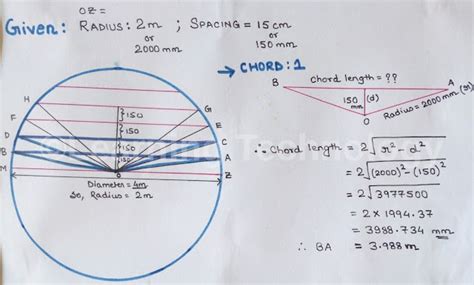 OZ =
Given: RADIUS: 2m ; SPACING = 15 cm
or or
2000 mm 150 mm
→ CHORD: 1
Chord length = ??
B A
150 mm (d)
Radius = 2000 mm (r)
O
H G
F E
D C
B A
M Z
150
150
150
150
O
Diameter = 4m
So, Radius = 2m
∴ Chord length = 2√r² - d²
= 2√(2000)² - (150)²
= 2√3977500
= 2 x 1994.37
= 3988.734 mm
∴ BA = 3.988 m